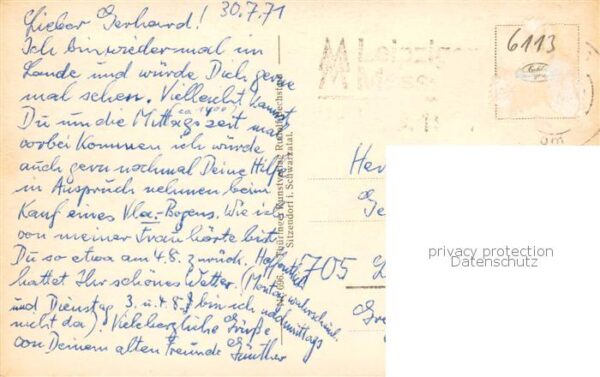 Lieber Gerhard! 30.7.71
Ich bin wiedermal im
Lande und würde Dich gerne
mal sehen. Vielleicht kannst
Du um die Mittagszeit mal
ca 1400
vorbei kommen ich würde
auch gern nochmal Deine Hilfe
in Anspruch nehmen beim
Kauf eines Vla.-Bogens. Wie ich
von meiner Frau hörte bist
Du so etwa am 4.8. zurück. Hoffentlich
hattet Ihr schönes Wetter. (Montag wahrscheinl.
und Dienstag 3. u. 4.8. bin ich nachmittags
nicht da). Viele herzliche Grüße
von Deinem alten Freunde Günther
Thüringer Kunstverlag Rudolf
Sitzendorf i. Schwarzatal.
Leipziger
Messe
6113
Her
Ge
705
privacy protection
Datenschutz